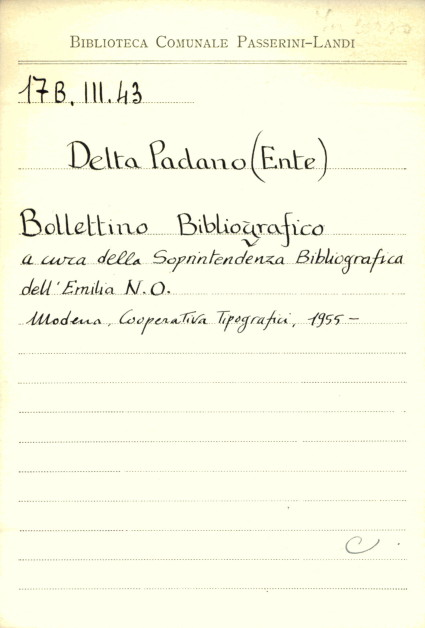 BIBLIOTECA COMUNALE PASSERINI-LANDI
17B. III. 43
Delta Padano (Ente)
Bollettino Bibliografico
a cura della Soprintendenza Bibliografica
dell'Emilia N.O.
Modena, Cooperativa Tipografici, 1955 -
C.